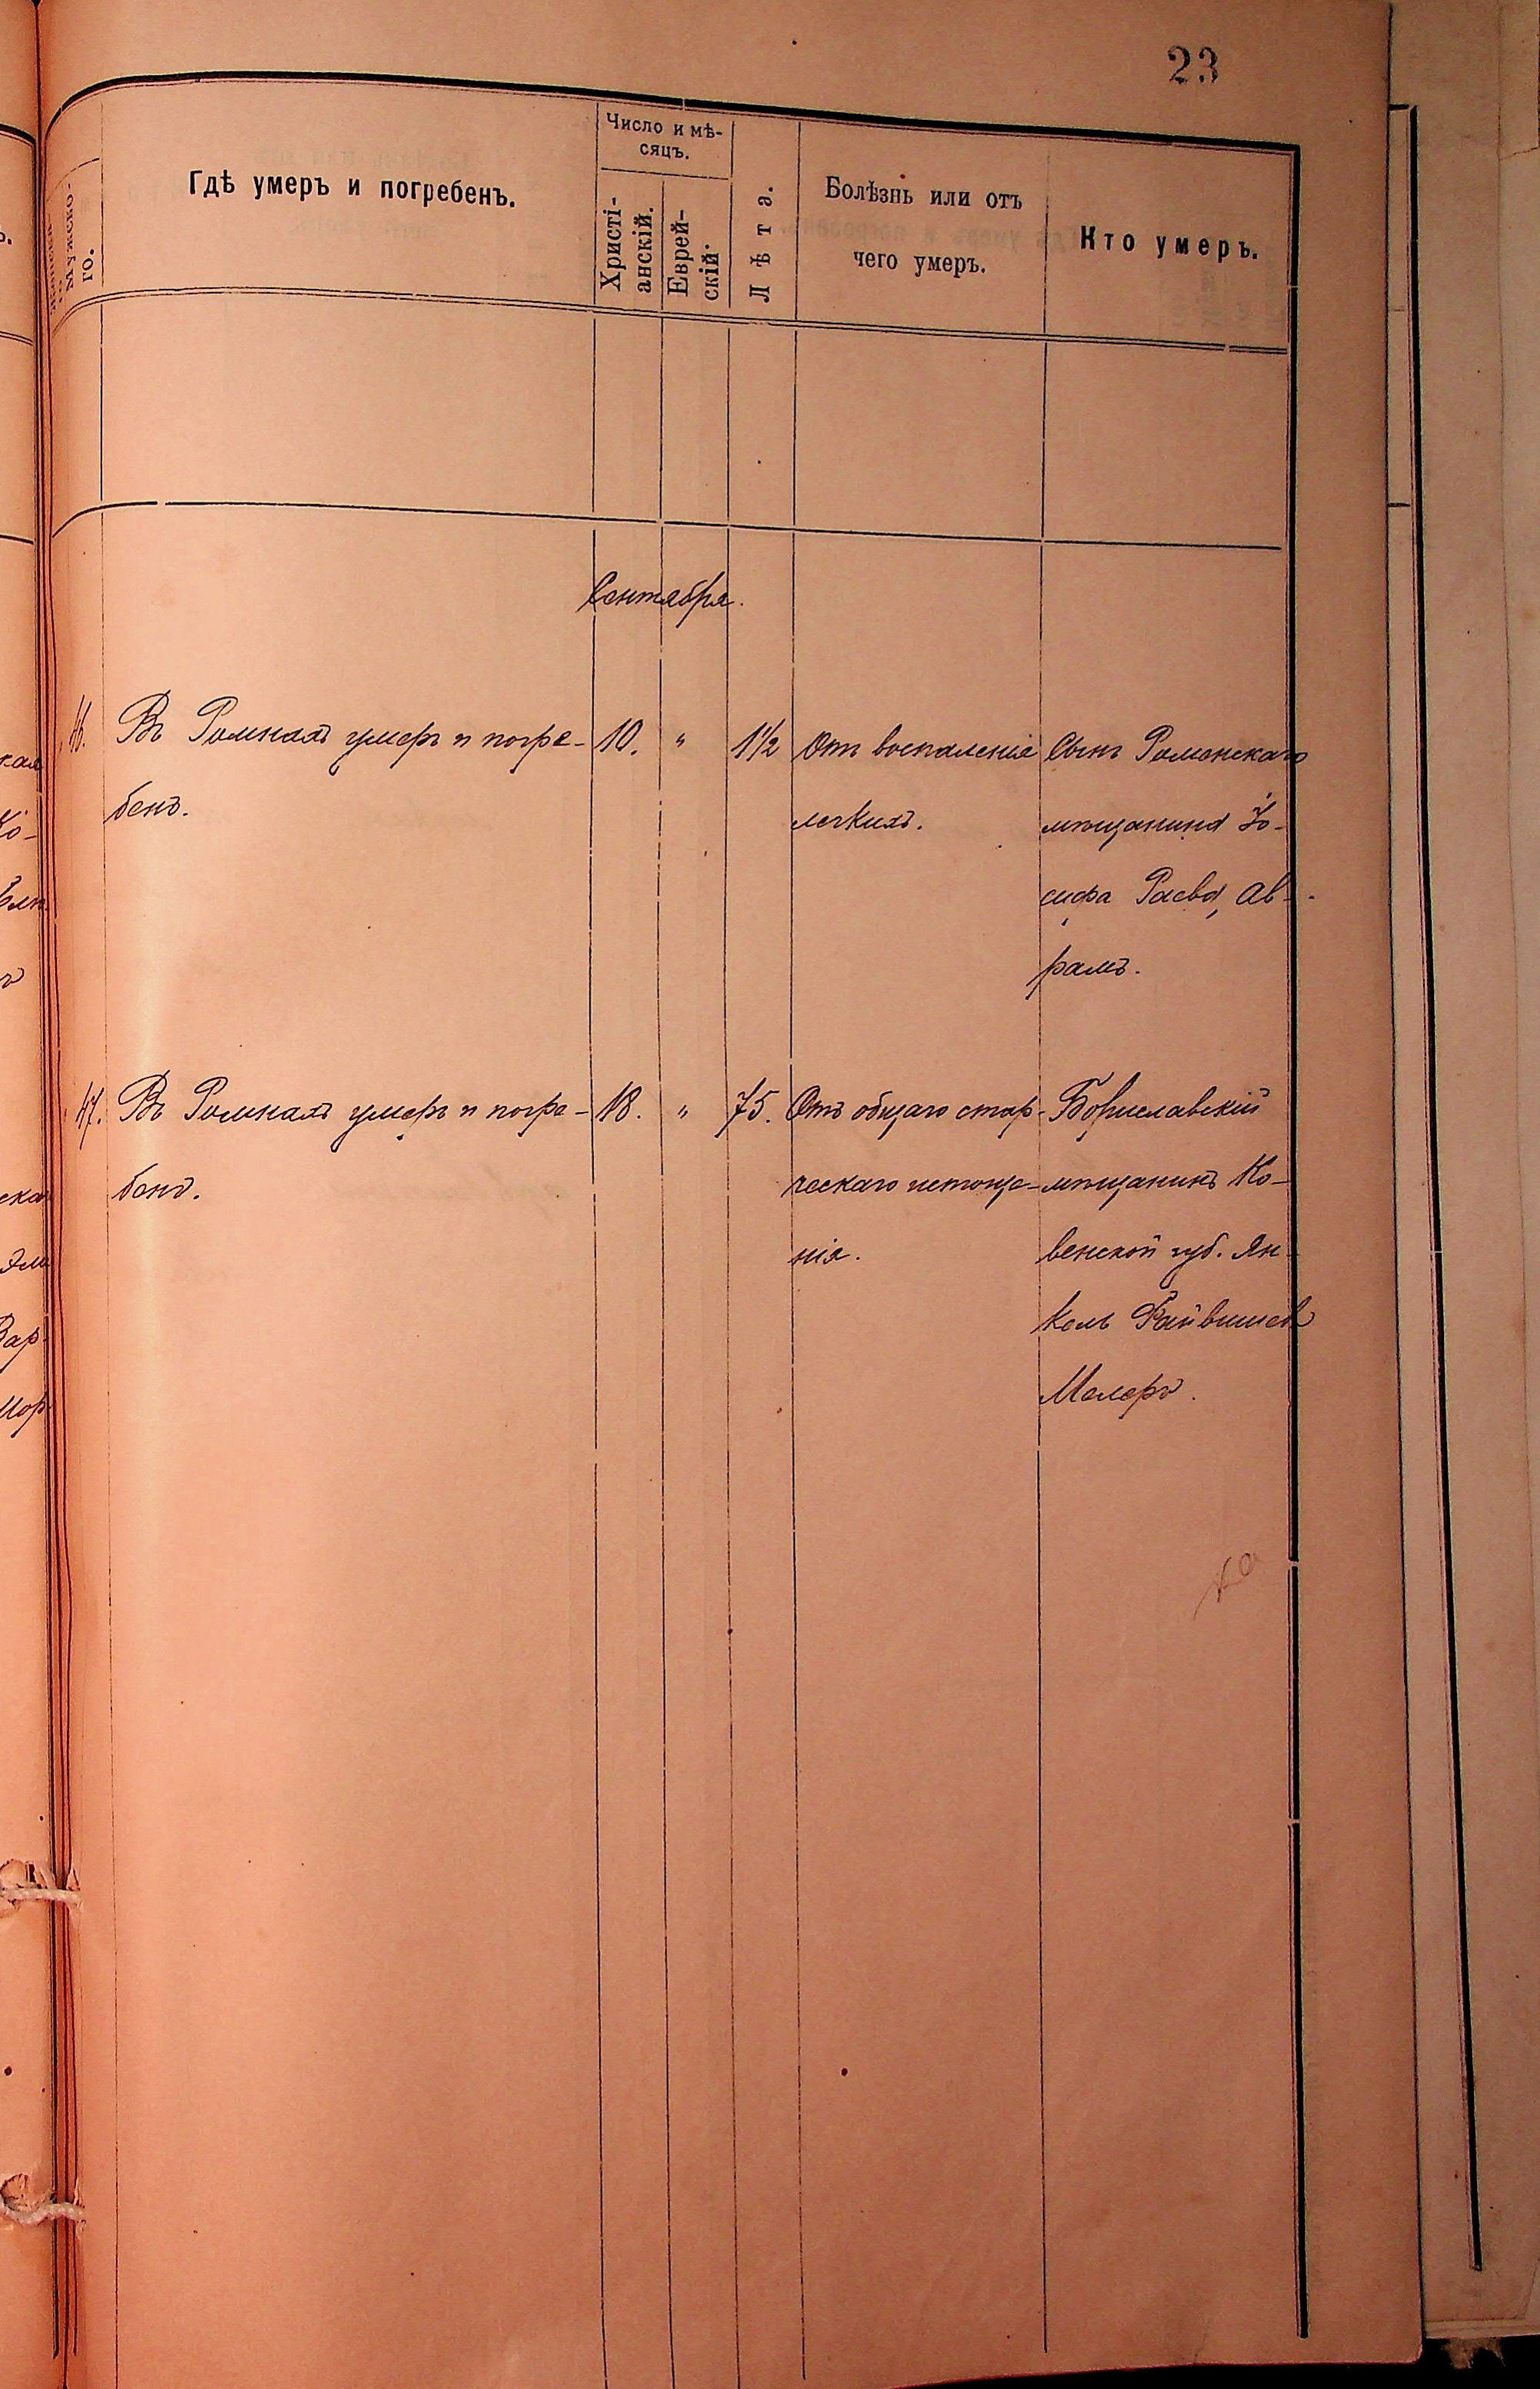 23
Мужско-
го.
Гдѣ умеръ и погребенъ.
Число и мѣ-
сяцъ.
Христі-
анскій.
Еврей-
скій.
Лѣта.
Болѣзнь или отъ
чего умеръ.
Кто умеръ.
Сентября.
46. Въ Ромнахъ умеръ и погре- 10. " 1½ Отъ воспаленія Сынъ Роменскаго
бенъ. легкихъ. мѣщанина Іо-
сифа Раева, Ав-
рамъ.
47. Въ Ромнахъ умеръ и погре- 18. " 75. Отъ общаго стар- Бориславскій
бенъ. ческаго истоще- мѣщанинъ Ко-
нія. венской губ. Ян-
кель Файвишев
Мелеръ.